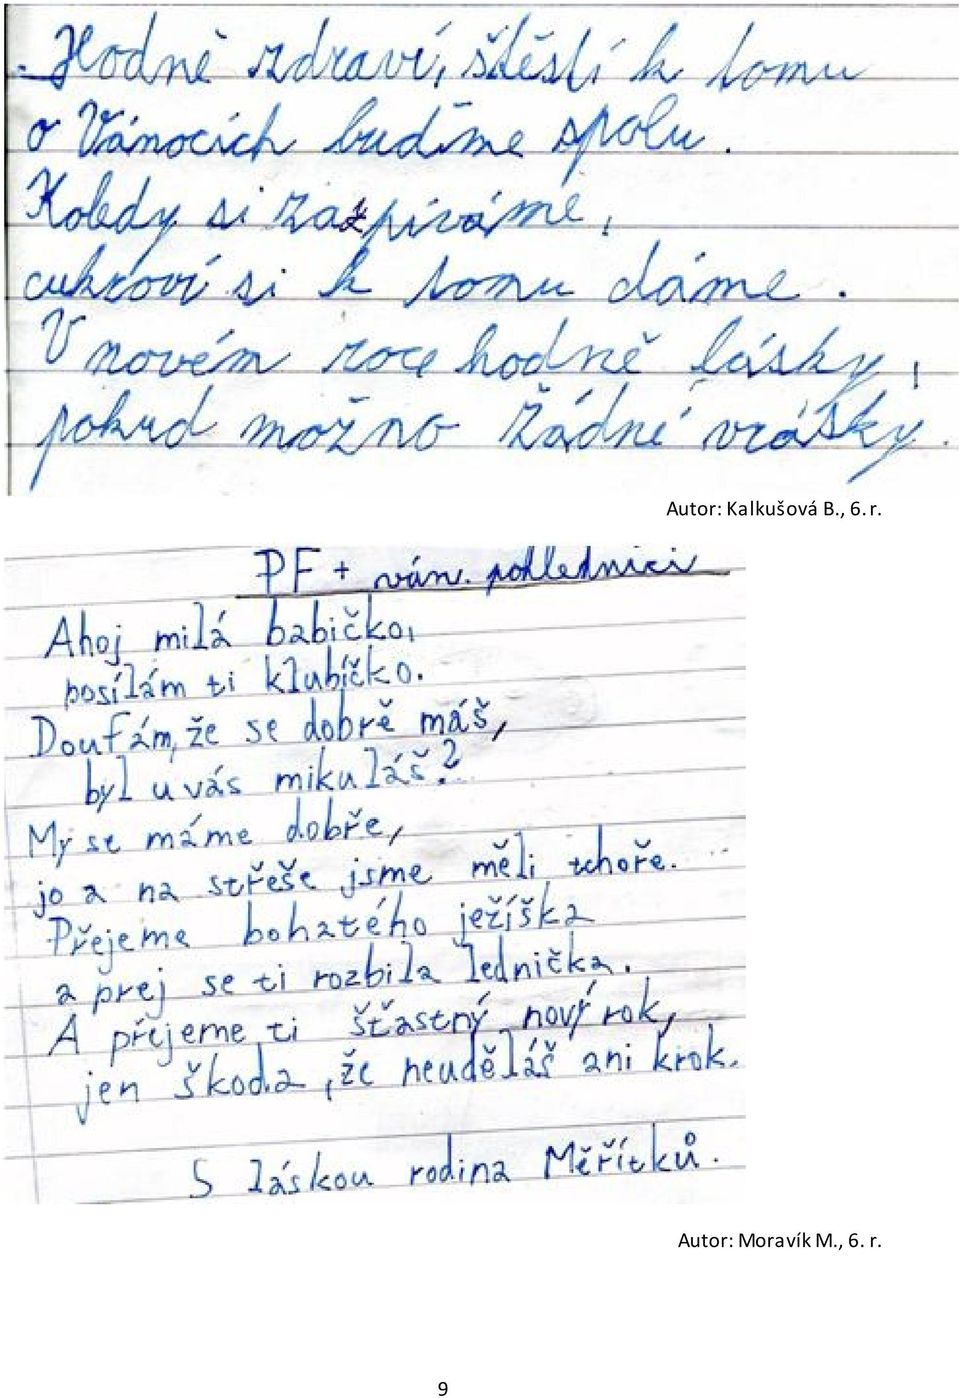 Hodně zdraví, štěstí k tomu
o Vánocích budíme spolu.
Koledy si zazpíváme,
cukroví si k tomu dáme.
V novém roce hodně lásky,
pokud možno žádné vrásky.
Autor: Kalkušová B., 6. r.
PF + ván. pohlednici
Ahoj milá babičko,
posílám ti klubíčko.
Doufám, že se dobrě máš,
byl u vás mikuláš?
My se máme dobře,
jo a na střeše jsme měli tchoře.
Přejeme bohatého ježíška
a prej se ti rozbila lednička.
A přejeme ti šťastný nový rok,
jen škoda, že neuděláš ani krok.
S láskou rodina Měřítků.
Autor: Moravík M., 6. r.
9